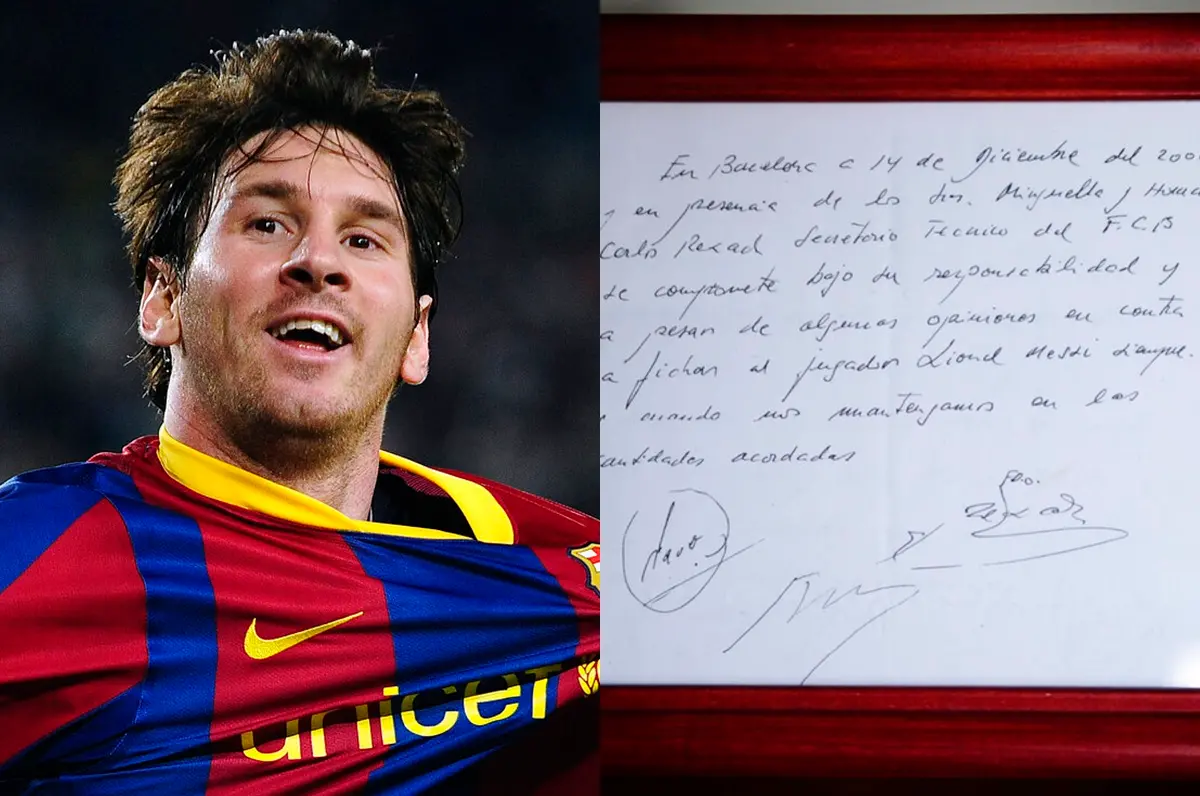 unicef
En Barcelona a 14 de Diciembre del 200
y en presencia de los Sres. Minguella y Horac
Carlos Rexach Secretario Técnico del F.C.B
se compromete bajo su responsabilidad y
a pesar de algunas opiniones en contra
a fichar al jugador Lionel Messi siempre
y cuando nos mantengamos en las
cantidades acordadas